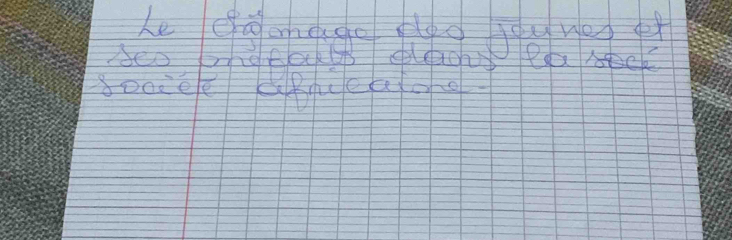 Le chômage des jeunes et
ses méfaits dans la socé
sociéte africaine.